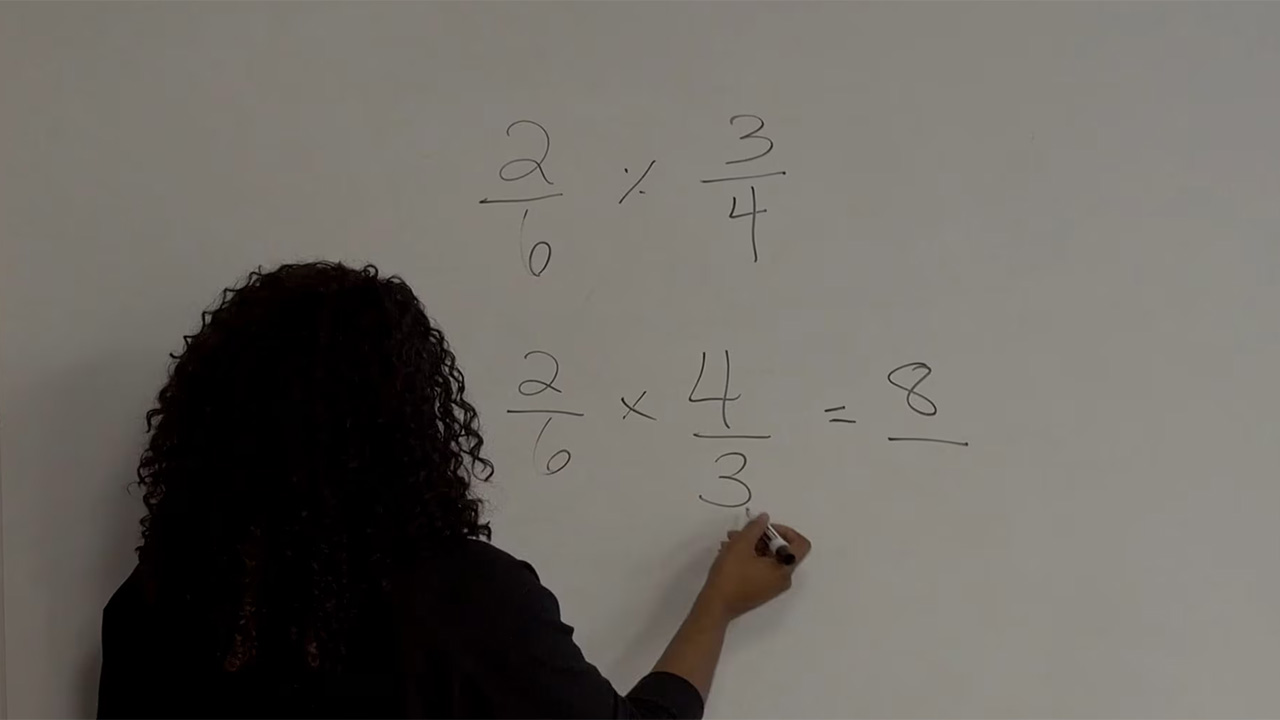 2/6 ٪ 3/4
2/6 × 4/3 = 8/